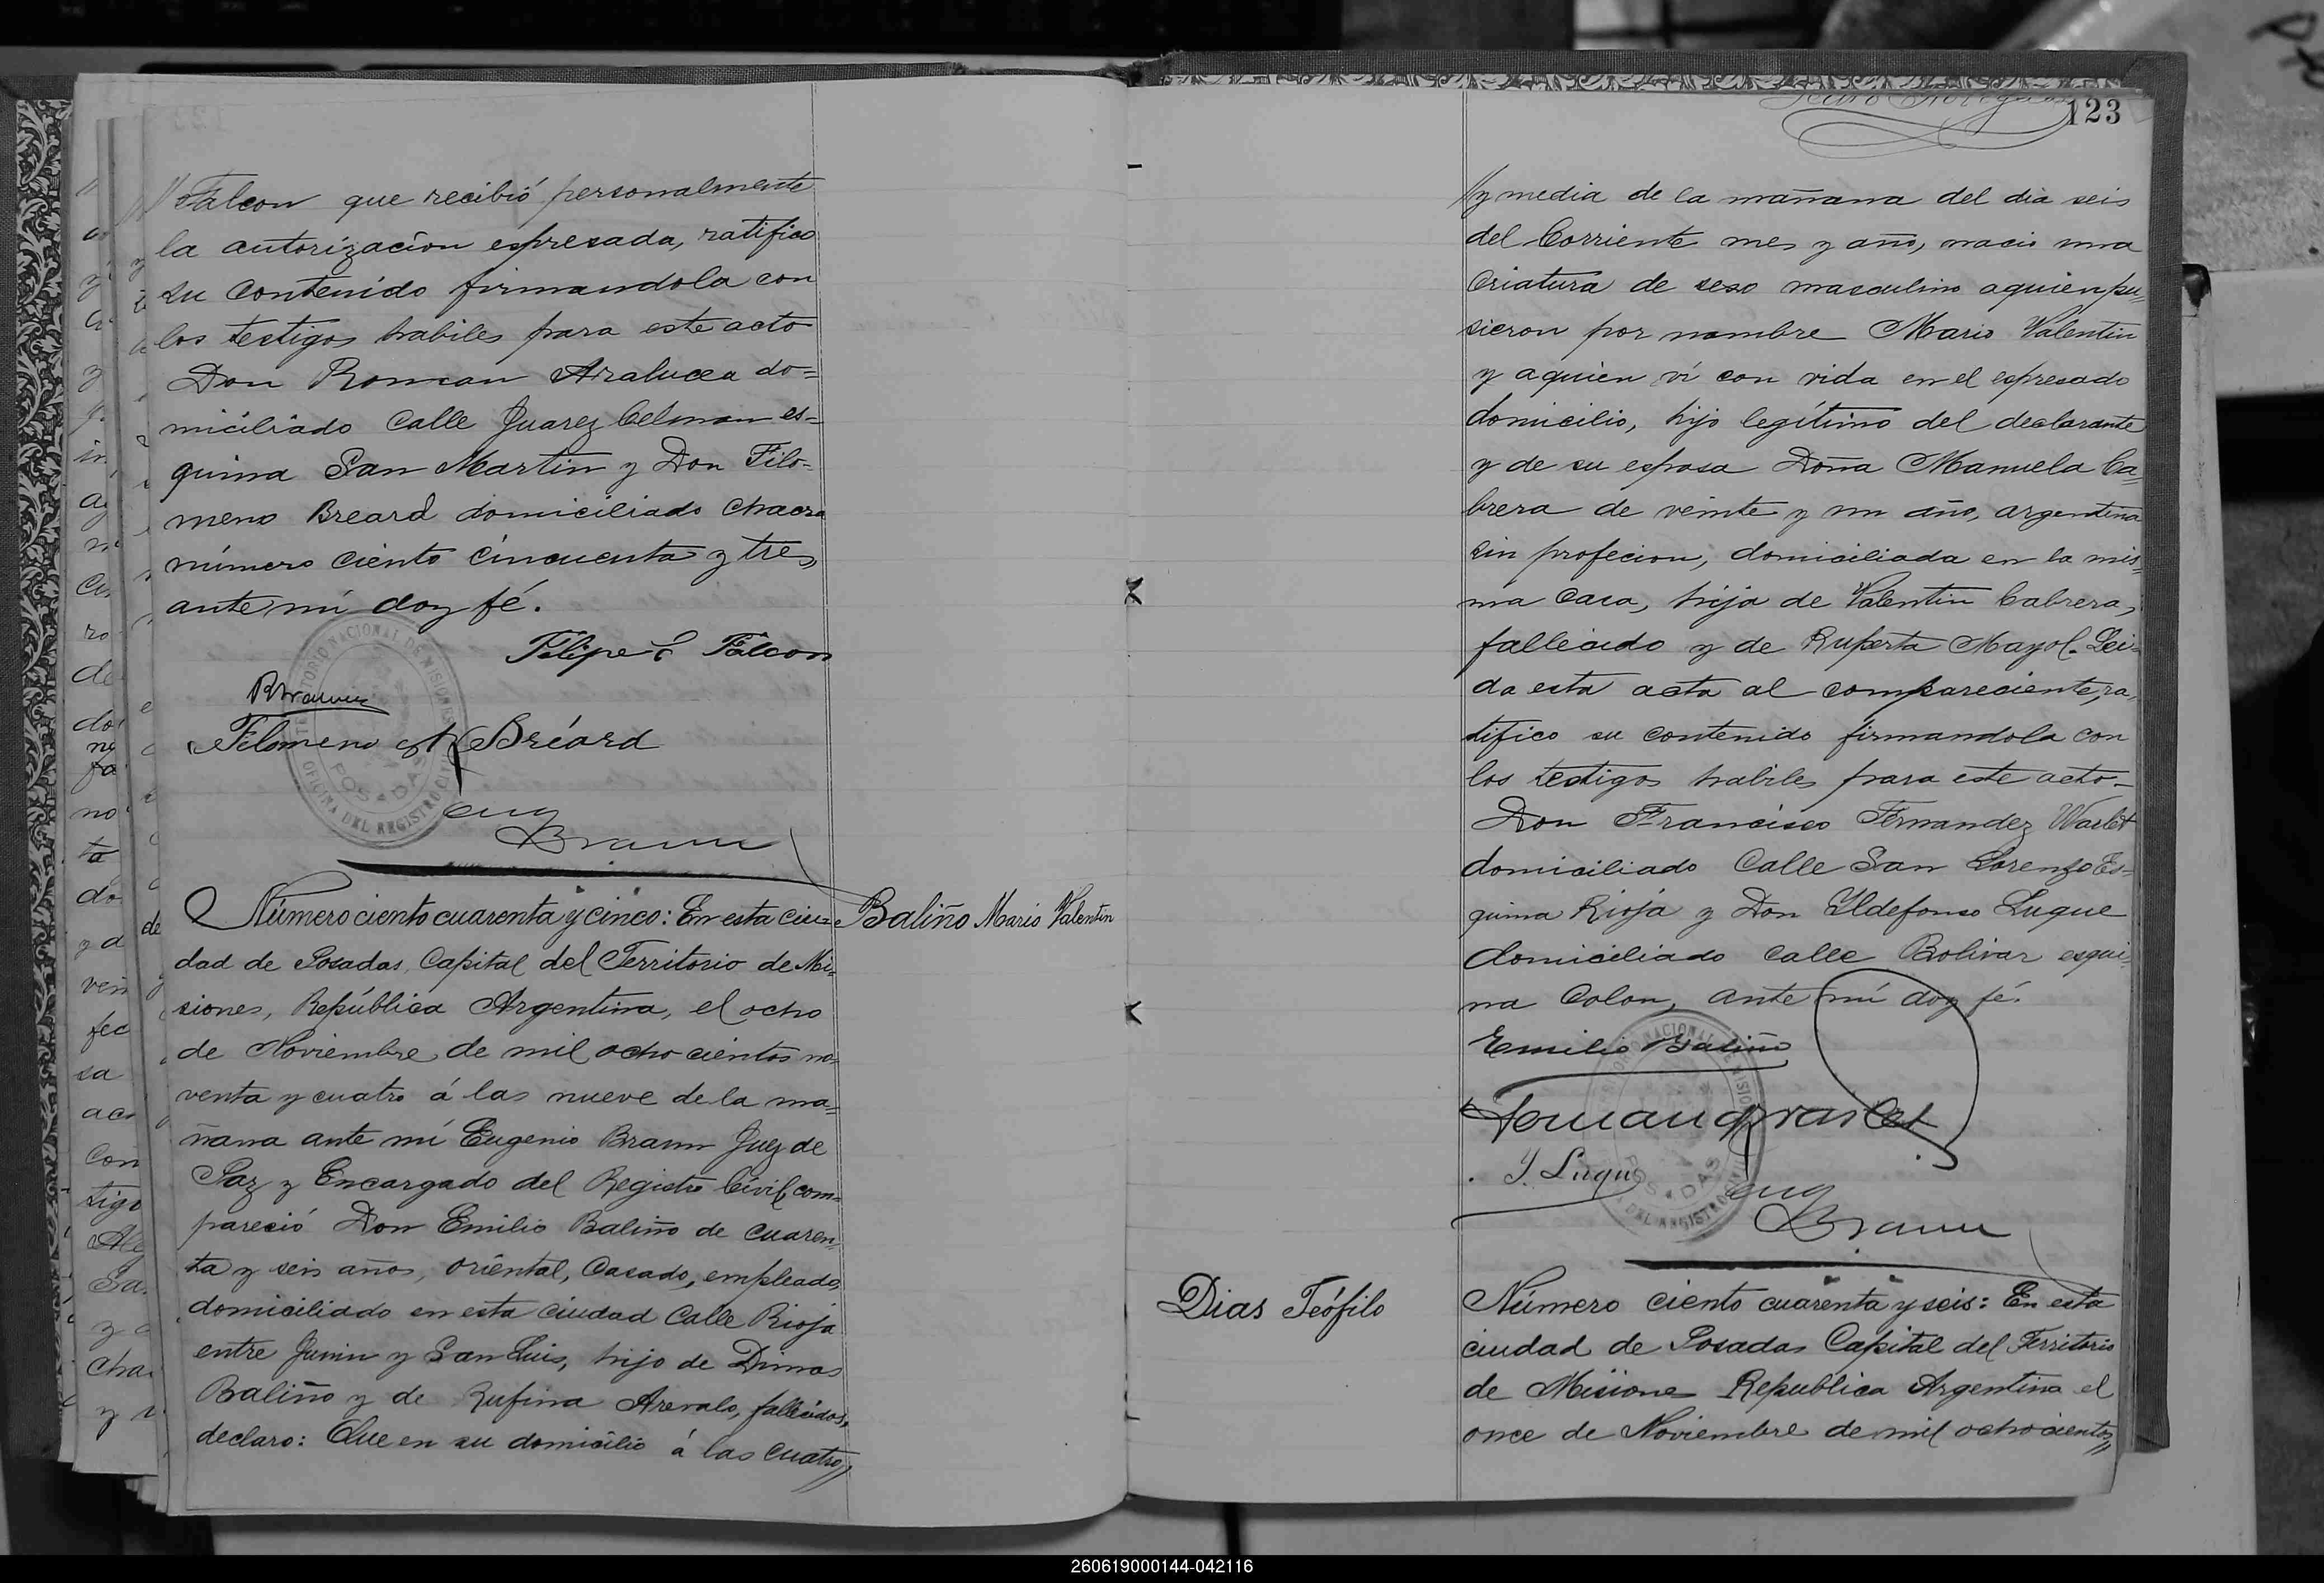 "Falcon que recibió personalmente
la autorización espresada, ratifico
su contenido firmandola con
los testigos habiles para este acto
Don Roman Aralucea do=
miciliado Calle Juarez Celman es=
quina San Martin y Don Filo=
meno Breard domiciliado Chacra
número ciento cincuenta y tres
ante mí doy fé.
Felipe S Falcon
Filomeno Bréard
Eug
Braun
Número ciento cuarenta y cinco: En esta ciu=
Baliño Mario Valentin
dad de Posadas, Capital del Territorio de Mi=
siones, República Argentina, el ocho
de Noviembre de mil ocho cientos no=
venta y cuatro á las nueve de la ma=
ñana ante mí Eugenio Braun Juez de
Paz y Encargado del Registro Civil, com=
pareció Don Emilio Baliño de cuaren=
ta y seis años, oriental, Casado, empleado,
domiciliado en esta ciudad Calle Rioja
entre Junin y San Luis, hijo de Dimas
Baliño y de Rufina Arevalo, fallecidos,
declaro: Que en su domicilio á las cuatro"
123
"y media de la mañana del dia seis
del Corriente mes y año, nacio una
Criatura de seso masculino aquien pu=
sieron por nombre Mario Valentin
y aquien ví con vida en el espresado
domicilio, hijo legítimo del declarante
y de su esposa Doña Manuela Ca=
brera de veinte y un año, argentina
sin profecion, domiciliada en la mis=
ma Casa, hija de Valentin Cabrera,
fallecido y de Ruperta Mayol. Lei=
da esta acta al compareciente, ra=
tifico su contenido firmandola con
los testigos habiles para este acto_
Don Francisco Fernandez Warlet
domiciliado Calle San Lorenzo Es=
quina Rioja y Don Yldefonso Luque
domiciliado Calle Bolivar esqui=
na Colon, ante mí doy fé.
Emilio Baliño
Y. Luque
Eug
Braun
Dias Teófilo
Número ciento cuarenta y seis: En esta
ciudad de Posadas Capital del Territorio
de Misiones Republica Argentina el
once de Noviembre de mil ochocientos"
260619000144-042116